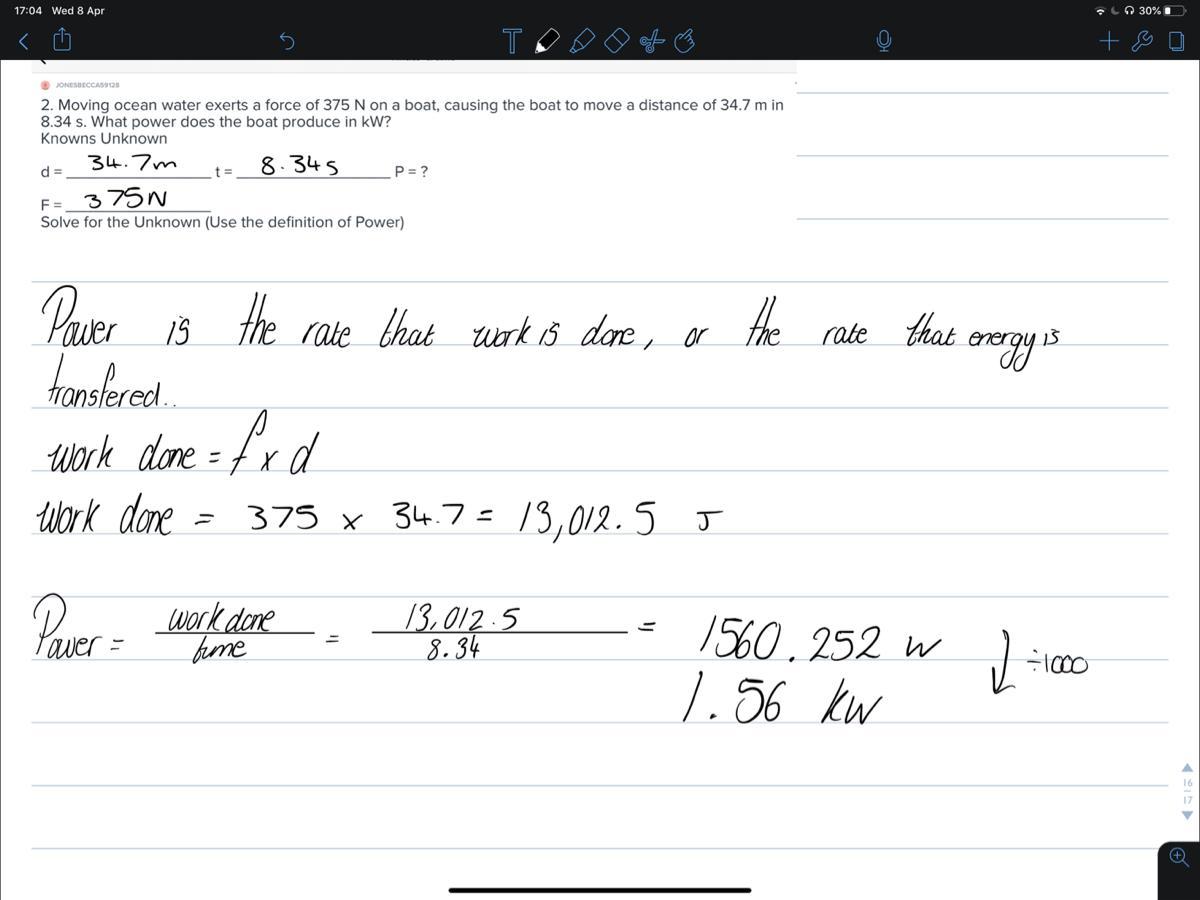 17:04 Wed 8 Apr
30%
JONESBECCA59128
2. Moving ocean water exerts a force of 375 N on a boat, causing the boat to move a distance of 34.7 m in
8.34 s. What power does the boat produce in kW?
Knowns Unknown
d = 34.7m t = 8.34s P = ?
F = 375N
Solve for the Unknown (Use the definition of Power)
Power is the rate that work is done, or the rate that energy is
transfered..
work done = f x d
work done = 375 x 34.7 = 13,012.5 J
Power = work done / time = 13,012.5 / 8.34 = 1560.252 w ↓ ÷1000
1.56 kw
16
17